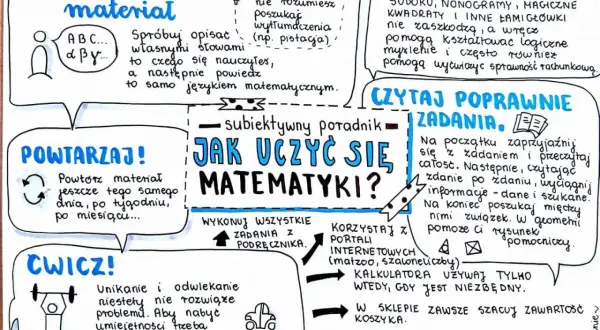 materiał
ABC...
αβγ...
Spróbuj opisać
własnymi słowami
to czego się nauczyłeś,
a następnie powiedz
to samo językiem matematycznym.
nie rozumiesz
poszukaj
wytłumaczenia
(np. pistacja)
SUDOKU, NONOGRAMY, MAGICZNE
KWADRATY I INNE ŁAMIGŁÓWKI
nie zaszkodzą, a wręcz
pomogą kształtować logiczne
myślenie i często również
pomogą wyćwiczyć sprawność rachunkową
subiektywny poradnik
JAK UCZYĆ SIĘ
MATEMATYKI?
POWTARZAJ!
Powtórz materiał
jeszcze tego samego
dnia, po tygodniu,
po miesiącu...
CZYTAJ POPRAWNIE
ZADANIA.
Na początku zaprzyjaźnij
się z zadaniem i przeczytaj
całość. Następnie, czytając
zdanie po zdaniu, wyciągnij
informacje - dane i szukane.
Na koniec poszukaj między
nimi związek. W geometrii
pomoże Ci rysunek
pomocniczy.
WYKONUJ WSZYSTKIE
ZADANIA Z
PODRĘCZNIKA.
KORZYSTAJ Z
PORTALI
INTERNETOWYCH
(matzoo, szaloneliczby)
KALKULATORA UŻYWAJ TYLKO
WTEDY, GDY JEST NIEZBĘDNY.
W SKLEPIE ZAWSZE SZACUJ ZAWARTOŚĆ
KOSZYKA.
ĆWICZ!
Unikanie i odwlekanie
niestety nie rozwiąże
problemu. Aby nabyć
umiejętności trzeba